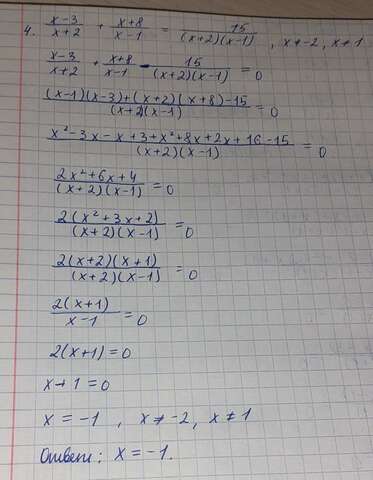 4. \frac{x-3}{x+2} + \frac{x+8}{x-1} = \frac{15}{(x+2)(x-1)}, x≠-2, x≠1
\frac{x-3}{x+2} + \frac{x+8}{x-1} - \frac{15}{(x+2)(x-1)} = 0
\frac{(x-1)(x-3)+(x+2)(x+8)-15}{(x+2)(x-1)} = 0
\frac{x²-3x-x+3+x²+8x+2x+16-15}{(x+2)(x-1)} = 0
\frac{2x²+6x+4}{(x+2)(x-1)} = 0
\frac{2(x²+3x+2)}{(x+2)(x-1)} = 0
\frac{2(x+2)(x+1)}{(x+2)(x-1)} = 0
\frac{2(x+1)}{x-1} = 0
2(x+1)=0
x+1=0
x=-1, x≠-2, x≠1
Ответ: x=-1.